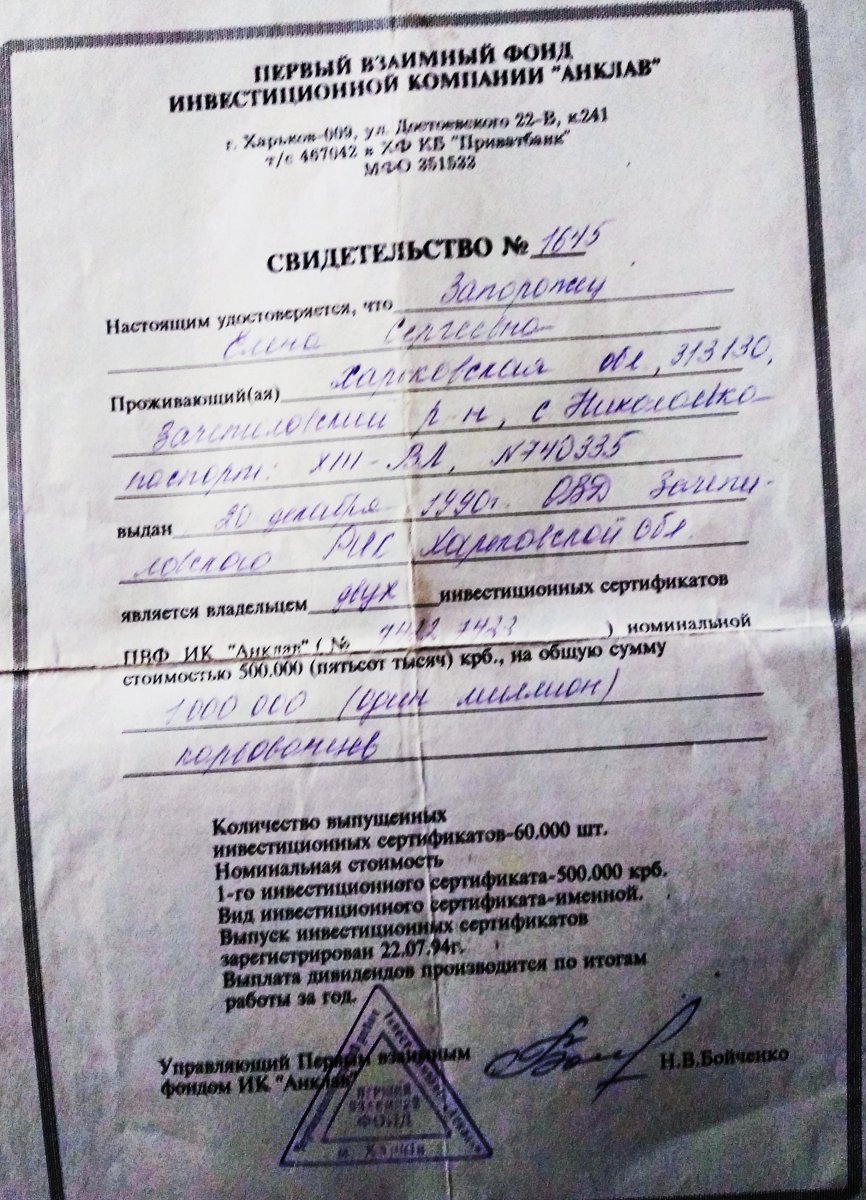 ПЕРВЫЙ ВЗАИМНЫЙ ФОНД
ИНВЕСТИЦИОННОЙ КОМПАНИИ "АНКЛАВ"
г. Харьков-009, ул. Достоевского 22-В, к.241
т/с 467042 в ХФ КБ "Приватбанк"
МФО 351533
СВИДЕТЕЛЬСТВО № 1645
Настоящим удостоверяется, что Запорожец
Елена Сергеевна
Проживающий(ая) Харьковская обл, 313130,
Зачепиловский р-н, с Николаевка
паспорт: XIII-ВЛ, N740335
выдан 20 декабря 1990г. ОВД Зачепи-
ловского РИК Харьковской обл.
является владельцем двух инвестиционных сертификатов
ПВФ ИК "Анклав" ( № ) номинальной
стоимостью 500.000 (пятьсот тысяч) крб., на общую сумму
1000 000 (один миллион)
карбованцев
Количество выпущенных
инвестиционных сертификатов-60.000 шт.
Номинальная стоимость
1-го инвестиционного сертификата-500.000 крб.
Вид инвестиционного сертификата-именной.
Выпуск инвестиционных сертификатов
зарегистрирован 22.07.94г.
Выплата дивидендов производится по итогам
работы за год.
Управляющий Первым взаимным
фондом ИК "Анклав" Н.В.Бойченко
ФОНД
м. Харків